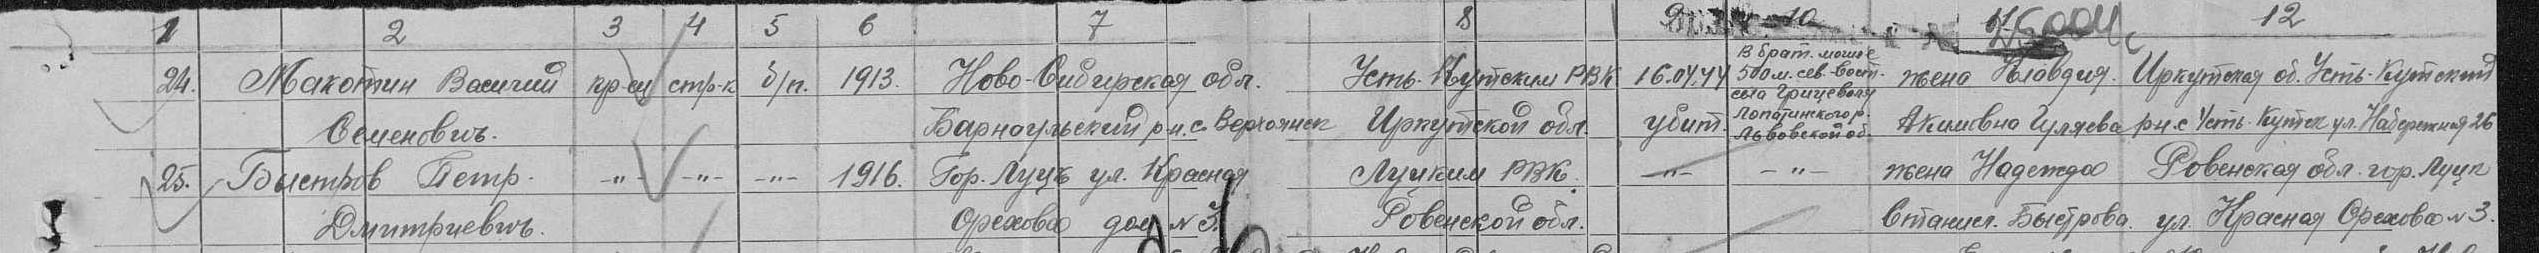 1 2 3 4 5 6 7 8 9 10 11 12
24. Макотин Василий кр-ец стр-к б/п. 1913. Ново-Сибирская обл. Усть-Кутским РВК 16.04.44 В брат. могиле жена Клавдия. Иркутская об. Усть-Кутский
500 м. сев.-вост.
села Грицеволя
Семеновичъ. Барнаульский р-н. с. Верхоянск Иркутской обл. убит. Лопатинского р. Акимовна Гуляева р-н. с Усть-Кутск ул. Набережная 26
Львовской об.
25. Быстров Петр. -"- -"- -"- 1916. Гор. Луцъ ул. Красная Луцким РВК. -"- -"- жена Надежда Ровенская обл. гор. Луцк
Дмитриевичъ. Орехова дом № 3. Ровенской обл. Станисл. Быстрова. ул. Красная Орехова № 3.